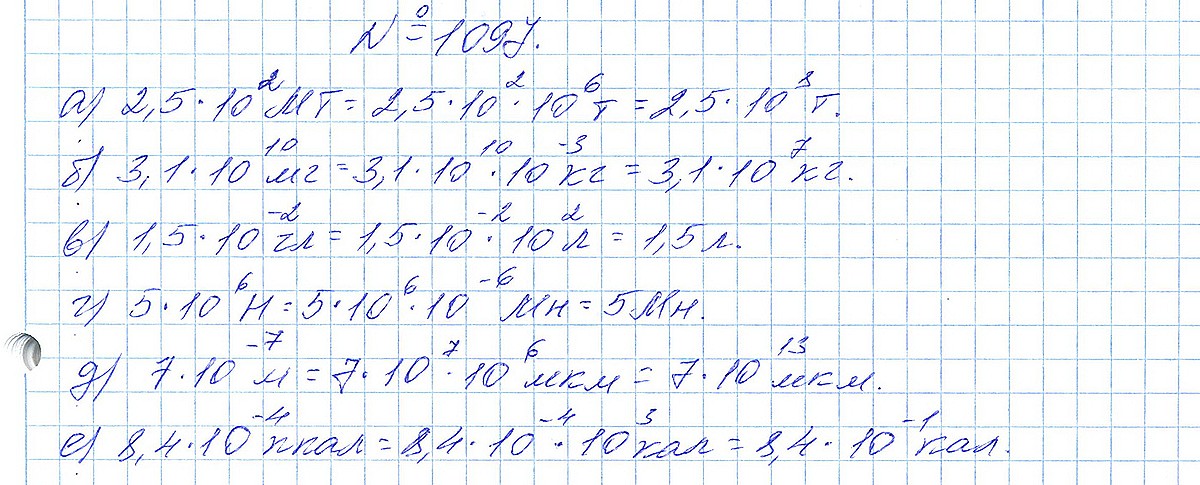 № 1097.
а) 2,5·10² Мт = 2,5·10²·10⁶ т = 2,5·10⁸ т.
б) 3,1·10¹⁰ мг = 3,1·10¹⁰·10⁻³ кг = 3,1·10⁷ кг.
в) 1,5·10⁻² гл = 1,5·10⁻²·10² л = 1,5 л.
г) 5·10⁶ Н = 5·10⁶·10⁻⁶ Мн = 5 Мн.
д) 7·10⁻⁷ м = 7·10⁷·10⁶ мкм = 7·10¹³ мкм.
е) 8,4·10⁻⁴ ккал = 8,4·10⁻⁴·10³ кал = 8,4·10⁻¹ кал.